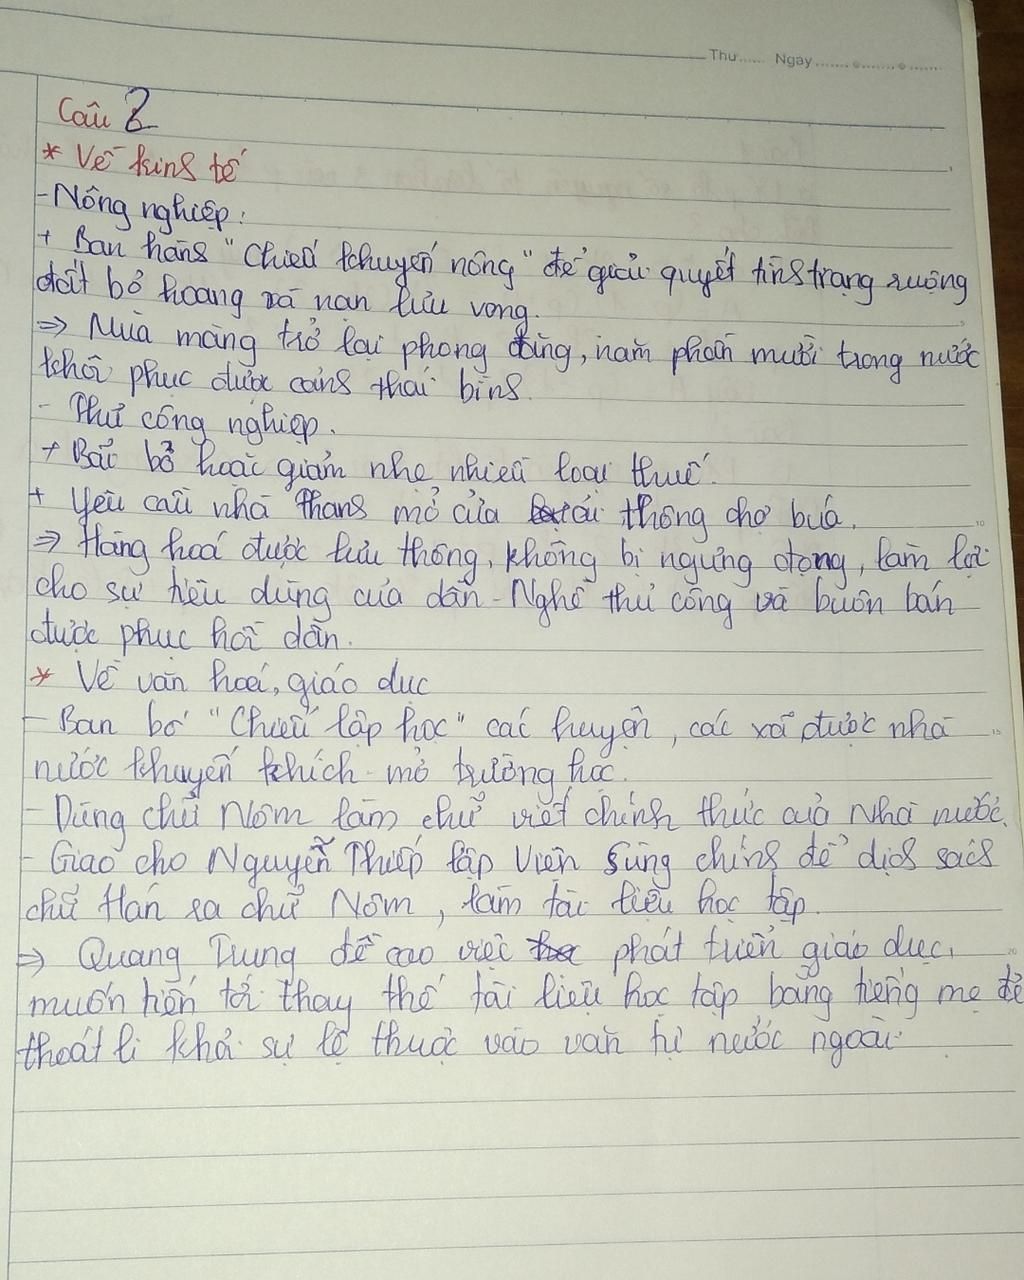 Thứ...... Ngày.................
Câu 2
* Về kinh tế
- Nông nghiệp:
+ Ban hành "Chiếu khuyến nông" để giải quyết tình trạng ruộng
đất bỏ hoang và nạn lưu vong.
=> Mùa màng trở lại phong đăng, năm phần mười trong nước
khôi phục được cảnh thái bình.
- Thủ công nghiệp.
+ Bãi bỏ hoặc giảm nhẹ nhiều loại thuế.
+ Yêu cầu nhà Thanh mở cửa ải thông chợ búa.
=> Hàng hoá được lưu thông, không bị ngưng đọng, làm lợi
cho sự tiêu dùng của dân - Nghề thủ công và buôn bán
được phục hồi dần.
* Về văn hoá, giáo dục
- Ban bố "Chiếu lập học" các huyện, các xã được nhà
nước khuyến khích mở trường học.
- Dùng chữ Nôm làm chữ viết chính thức của Nhà nước.
- Giao cho Nguyễn Thiếp lập Viện Sùng chính để dịch sách
chữ Hán ra chữ Nôm, làm tài liệu học tập.
=> Quang Trung đề cao việc phát triển giáo dục,
muốn tiến tới thay thế tài liệu học tập bằng tiếng mẹ đẻ
thoát li khỏi sự lệ thuộc vào văn tự nước ngoài.